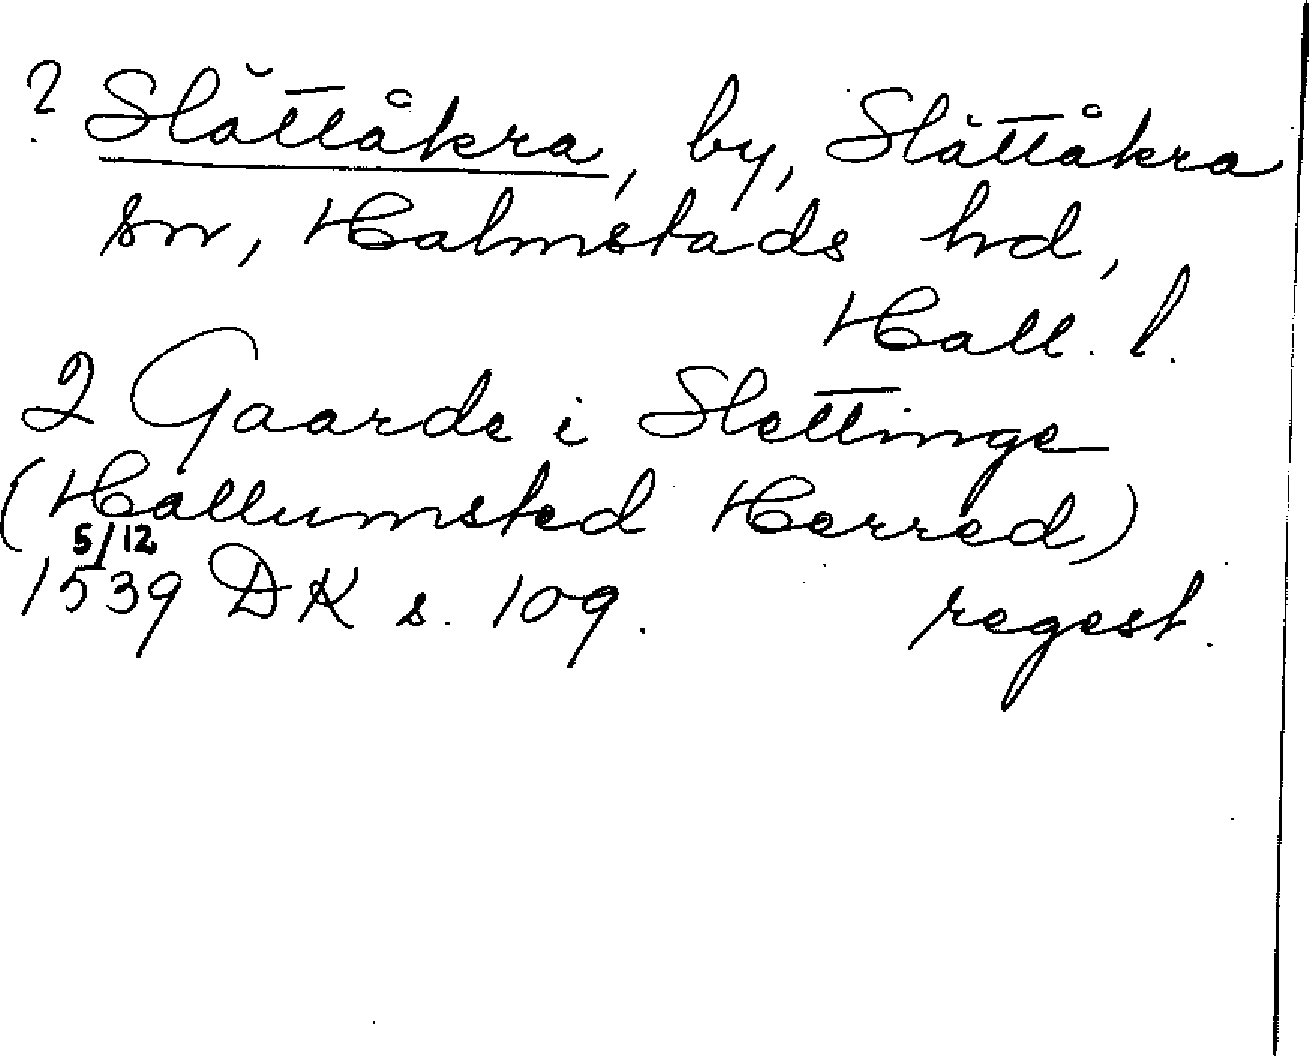 ? Slättåkra, by, Slättåkra
sn, Halmstads hd,
Hall. l.
2 Gaarde i Slettinge
(Hallumsted Herred)
5/12
1539 DK s. 109. regest.